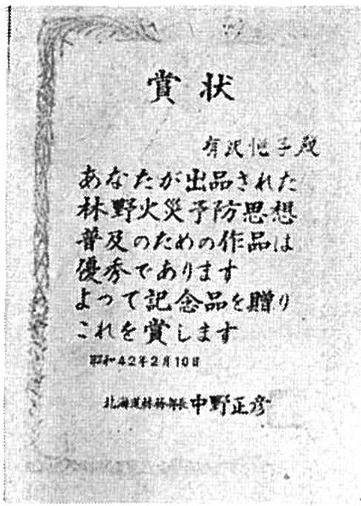 賞状
有沢悦子殿
あなたが出品された
林野火災予防思想
普及のための作品は
優秀であります
よって記念品を贈り
これを賞します
昭和42年2月10日
北海道林務部長 中野正彦